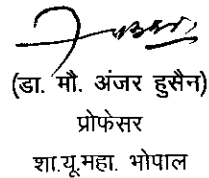 (डा. मौ. अंजर हुसैन)
प्रोफेसर
शा.यू.महा. भोपाल